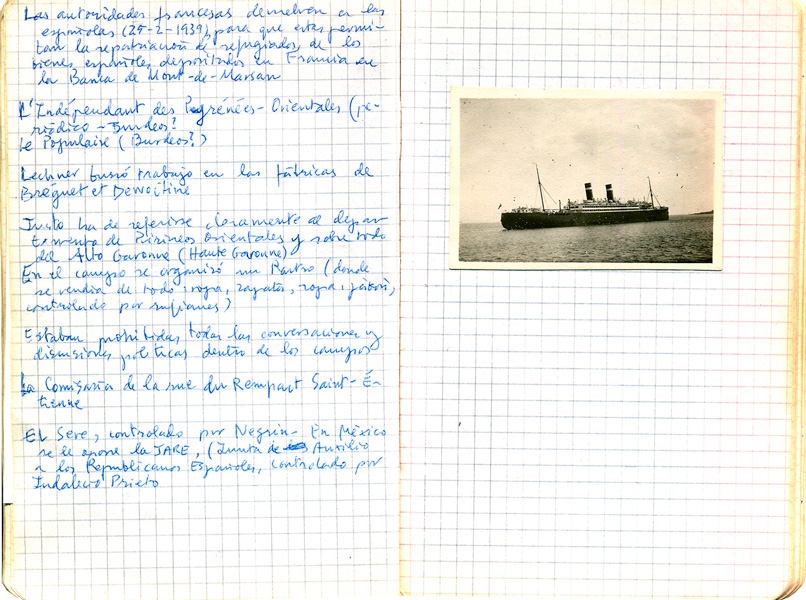 Las autoridades francesas devuelven a las
españolas (25-2-1939), para que estas permi-
tan la repatriación de refugiados, de los
bienes españoles depositados en Francia en
la Banca de Mont-de-Marsan
L'Indépendant des Pyrénées-Orientales (pe-
riódico - Burdeos?
Le Populaire (Burdeos?)
Lechner buscó trabajo en las fábricas de
Bréguet et Dewoitine
Justo ha de referirse claramente al depar-
tamento de Pirineos Orientales y sobre todo
del Alto Garonne (Haute Garonne)
En el campo se organizó un Rastro (donde
se vendía de todo: ropa, zapatos, ropa, jabón,
controlado por rufianes)
Estaban prohibidas todas las conversaciones y
discusiones políticas dentro de los campos
La Comisaría de la rue du Rempart Saint-É-
tienne
El Sere, controlado por Negrín- En México
se le opone la JARE, (Junta de Auxilio
a los Republicanos Españoles, controlado por
Indalecio Prieto